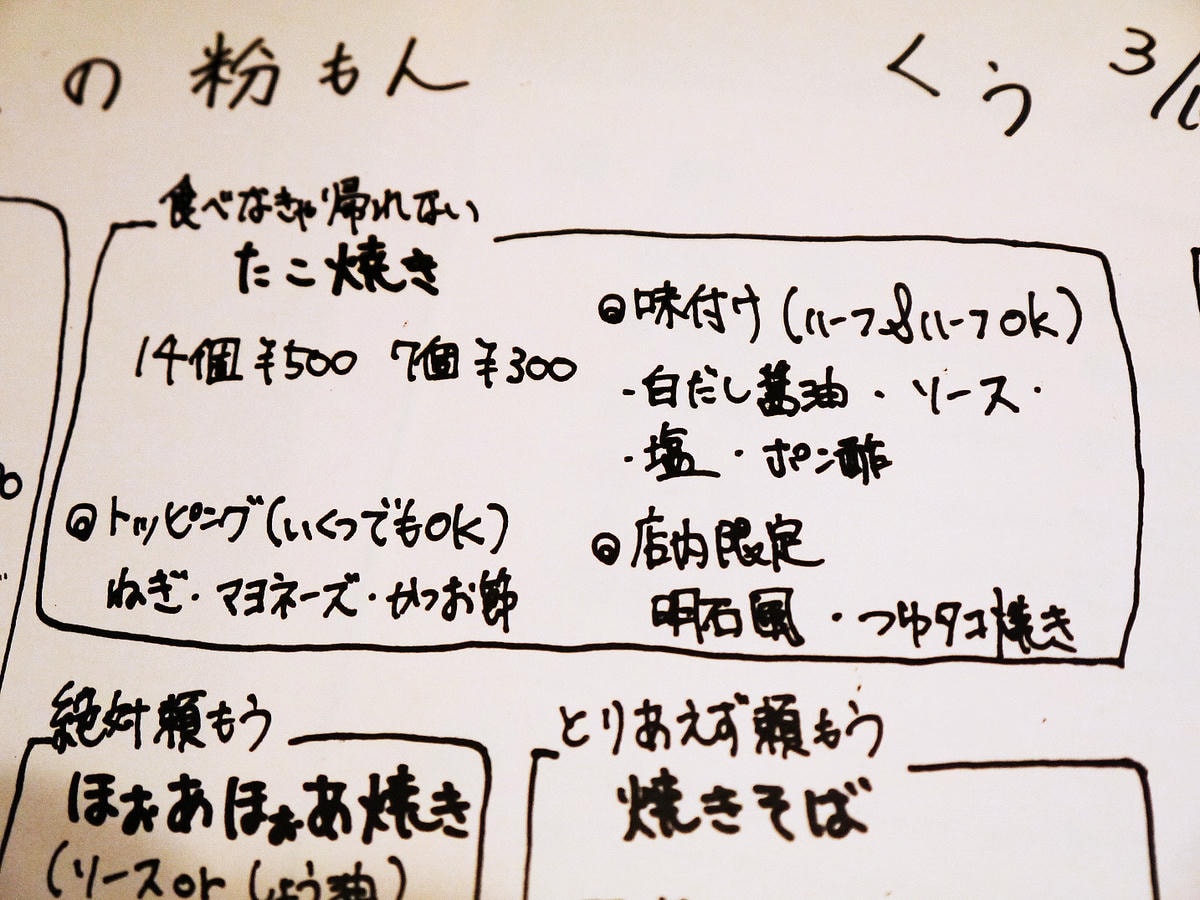 の 粉もん
くう 3/1
食べなきゃ帰れない
たこ焼き
14個 ¥500 7個 ¥300
◎トッピング(いくつでもOK)
ねぎ・マヨネーズ・かつお節
◎味付け(ハーフ&ハーフOK)
・白だし醤油・ソース・
・塩・ポン酢
◎店内限定
明石風・つゆタコ焼き
絶対頼もう
ほぉあほぉあ焼き
(ソースorしょう油)
とりあえず頼もう
焼きそば